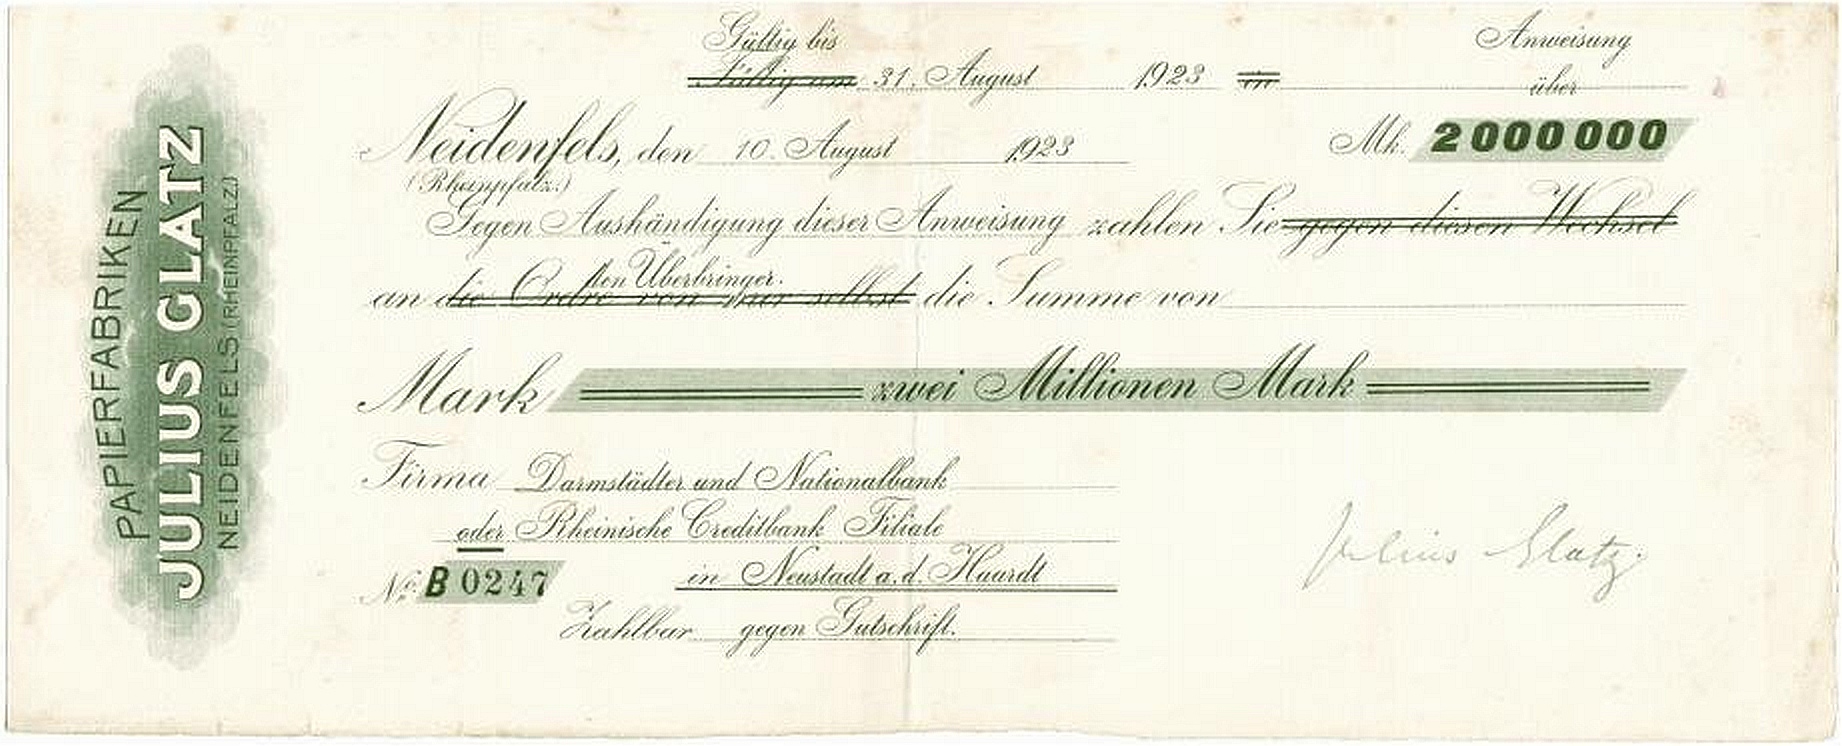 PAPIERFABRIKEN
JULIUS GLATZ
NEIDENFELS (RHEINPFALZ)
Gültig bis
Anweisung
Fällig am 31. August 1923 in
über
Neidenfels, den 10. August 1923
Mk. 2000000
(Rheinpfalz.)
Gegen Aushändigung dieser Anweisung zahlen Sie gegen diesen Wechsel
den Überbringer.
an die Ordre von mir selbst die Summe von
Mark zwei Millionen Mark
Firma Darmstädter und Nationalbank
oder Rheinische Creditbank Filiale
in Neustadt a. d. Haardt
No. B 0247
Zahlbar gegen Gutschrift.
Julius Glatz.